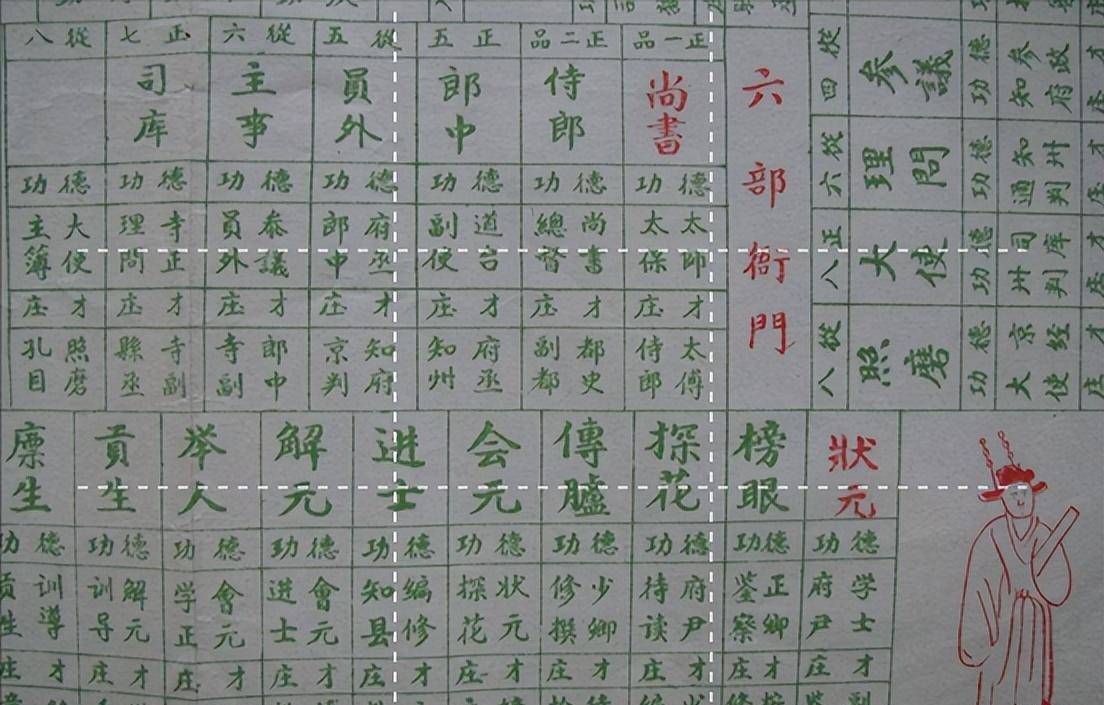 從四
參議
德功
參政 知府
才庄
從六
理問
德功
知州 通判
才庄
正八
大使
德功
司库 州判
才庄
從八
照磨
德功
京经 大使
才庄
六部衙門
正一品
尚書
德功
太師 太保
才庄
太傅 侍郎
正二品
侍郎
德功
尚書 總督
才庄
都史 副都
正五
郎中
德功
道台 副使
才庄
府丞 知州
從五
員外
德功
府丞 郎中
才庄
知府 京判
從六
主事
德功
參議 員外
才庄
郎中 寺副
正七
司库
德功
寺正 理問
才庄
寺副 縣丞
從八
德功
大使 主簿
才庄
照磨 孔目
狀元
德功
学士 府尹
才庄
榜眼
德功
正卿 鉴察
才庄
探花
德功
府尹 待读
才庄
傳臚
德功
少卿 修撰
才庄
会元
德功
狀元 探花
才庄
进士
德功
编修 知县
才庄
解元
德功
會元 进士
才庄
举人
德功
會元 学正
才庄
貢生
德功
解元 训导
才庄
廪生
德功
训導 贡生
才庄